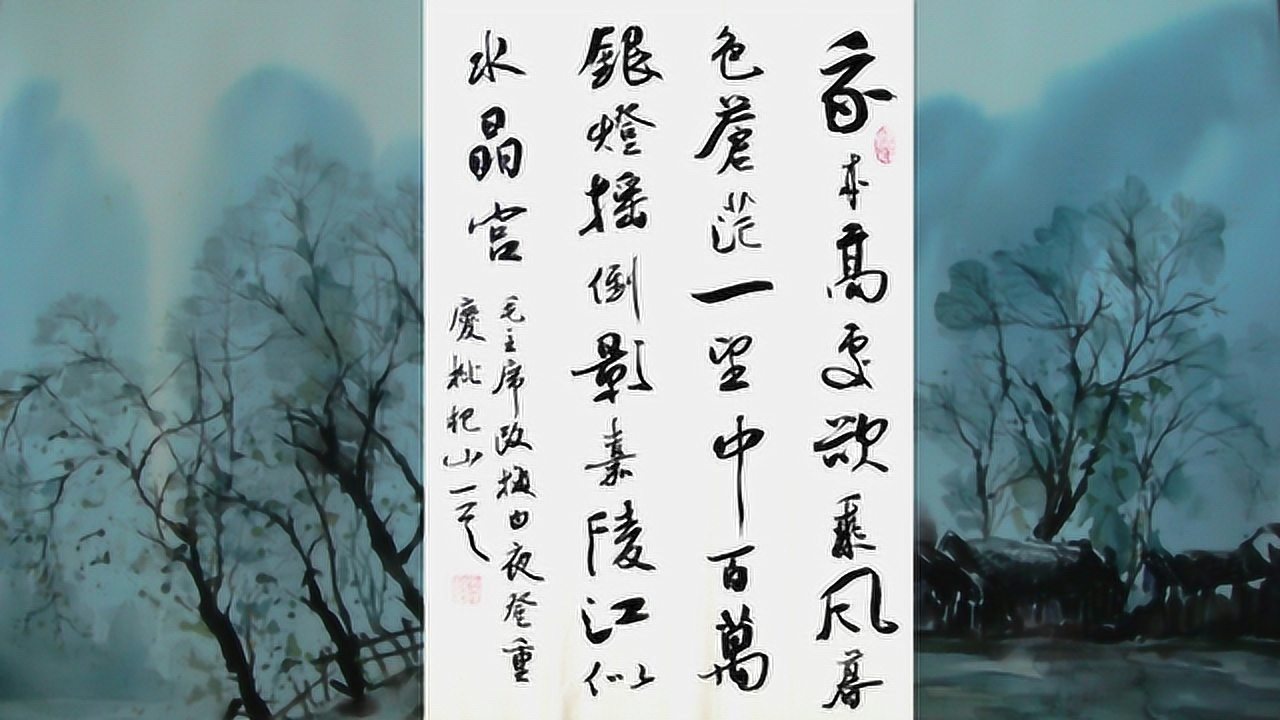 我來高處欲乘風暮
色蒼茫一望中百萬
銀燈摇倒影嘉陵江似
水晶宫
毛主席改 夜登重
慶枇杷山一首